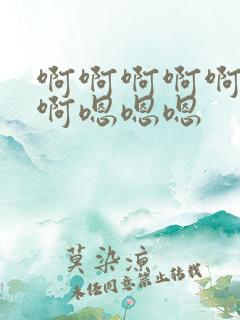 啊啊啊啊啊
啊嗯嗯嗯
莫染凉
未经同意禁止转载